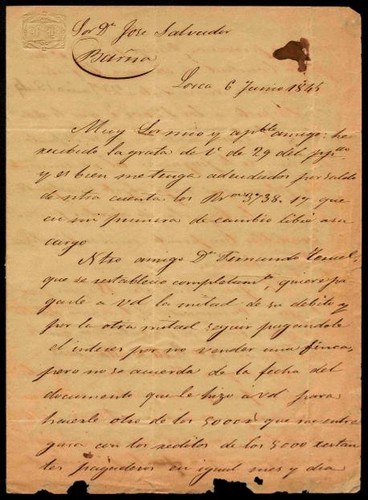 Sor Dn José Salvador
Barna
Lorca 6 Junio 1845
Muy Sor mio y apble amigo: he
recibido la grata de V. de 29 del
y es bien me tenga adeudados por saldo
de ntra cuenta los Rvon 38. 17 que
en mi primera de cambio libré a su
cargo
Ntro amigo Dn Fernando
que se restableció completamte, quiere pa
garle a Vd la mitad de su débito y
por la otra mitad seguir pagandole
el interes por no vender una finca,
pero no se acuerda de la fecha del
documento que le hizo a Vd para
hacerle otro de los 5000 que me entre
gara con los reditos de los 5000 restan
tes pagaderos en igual mes y dia